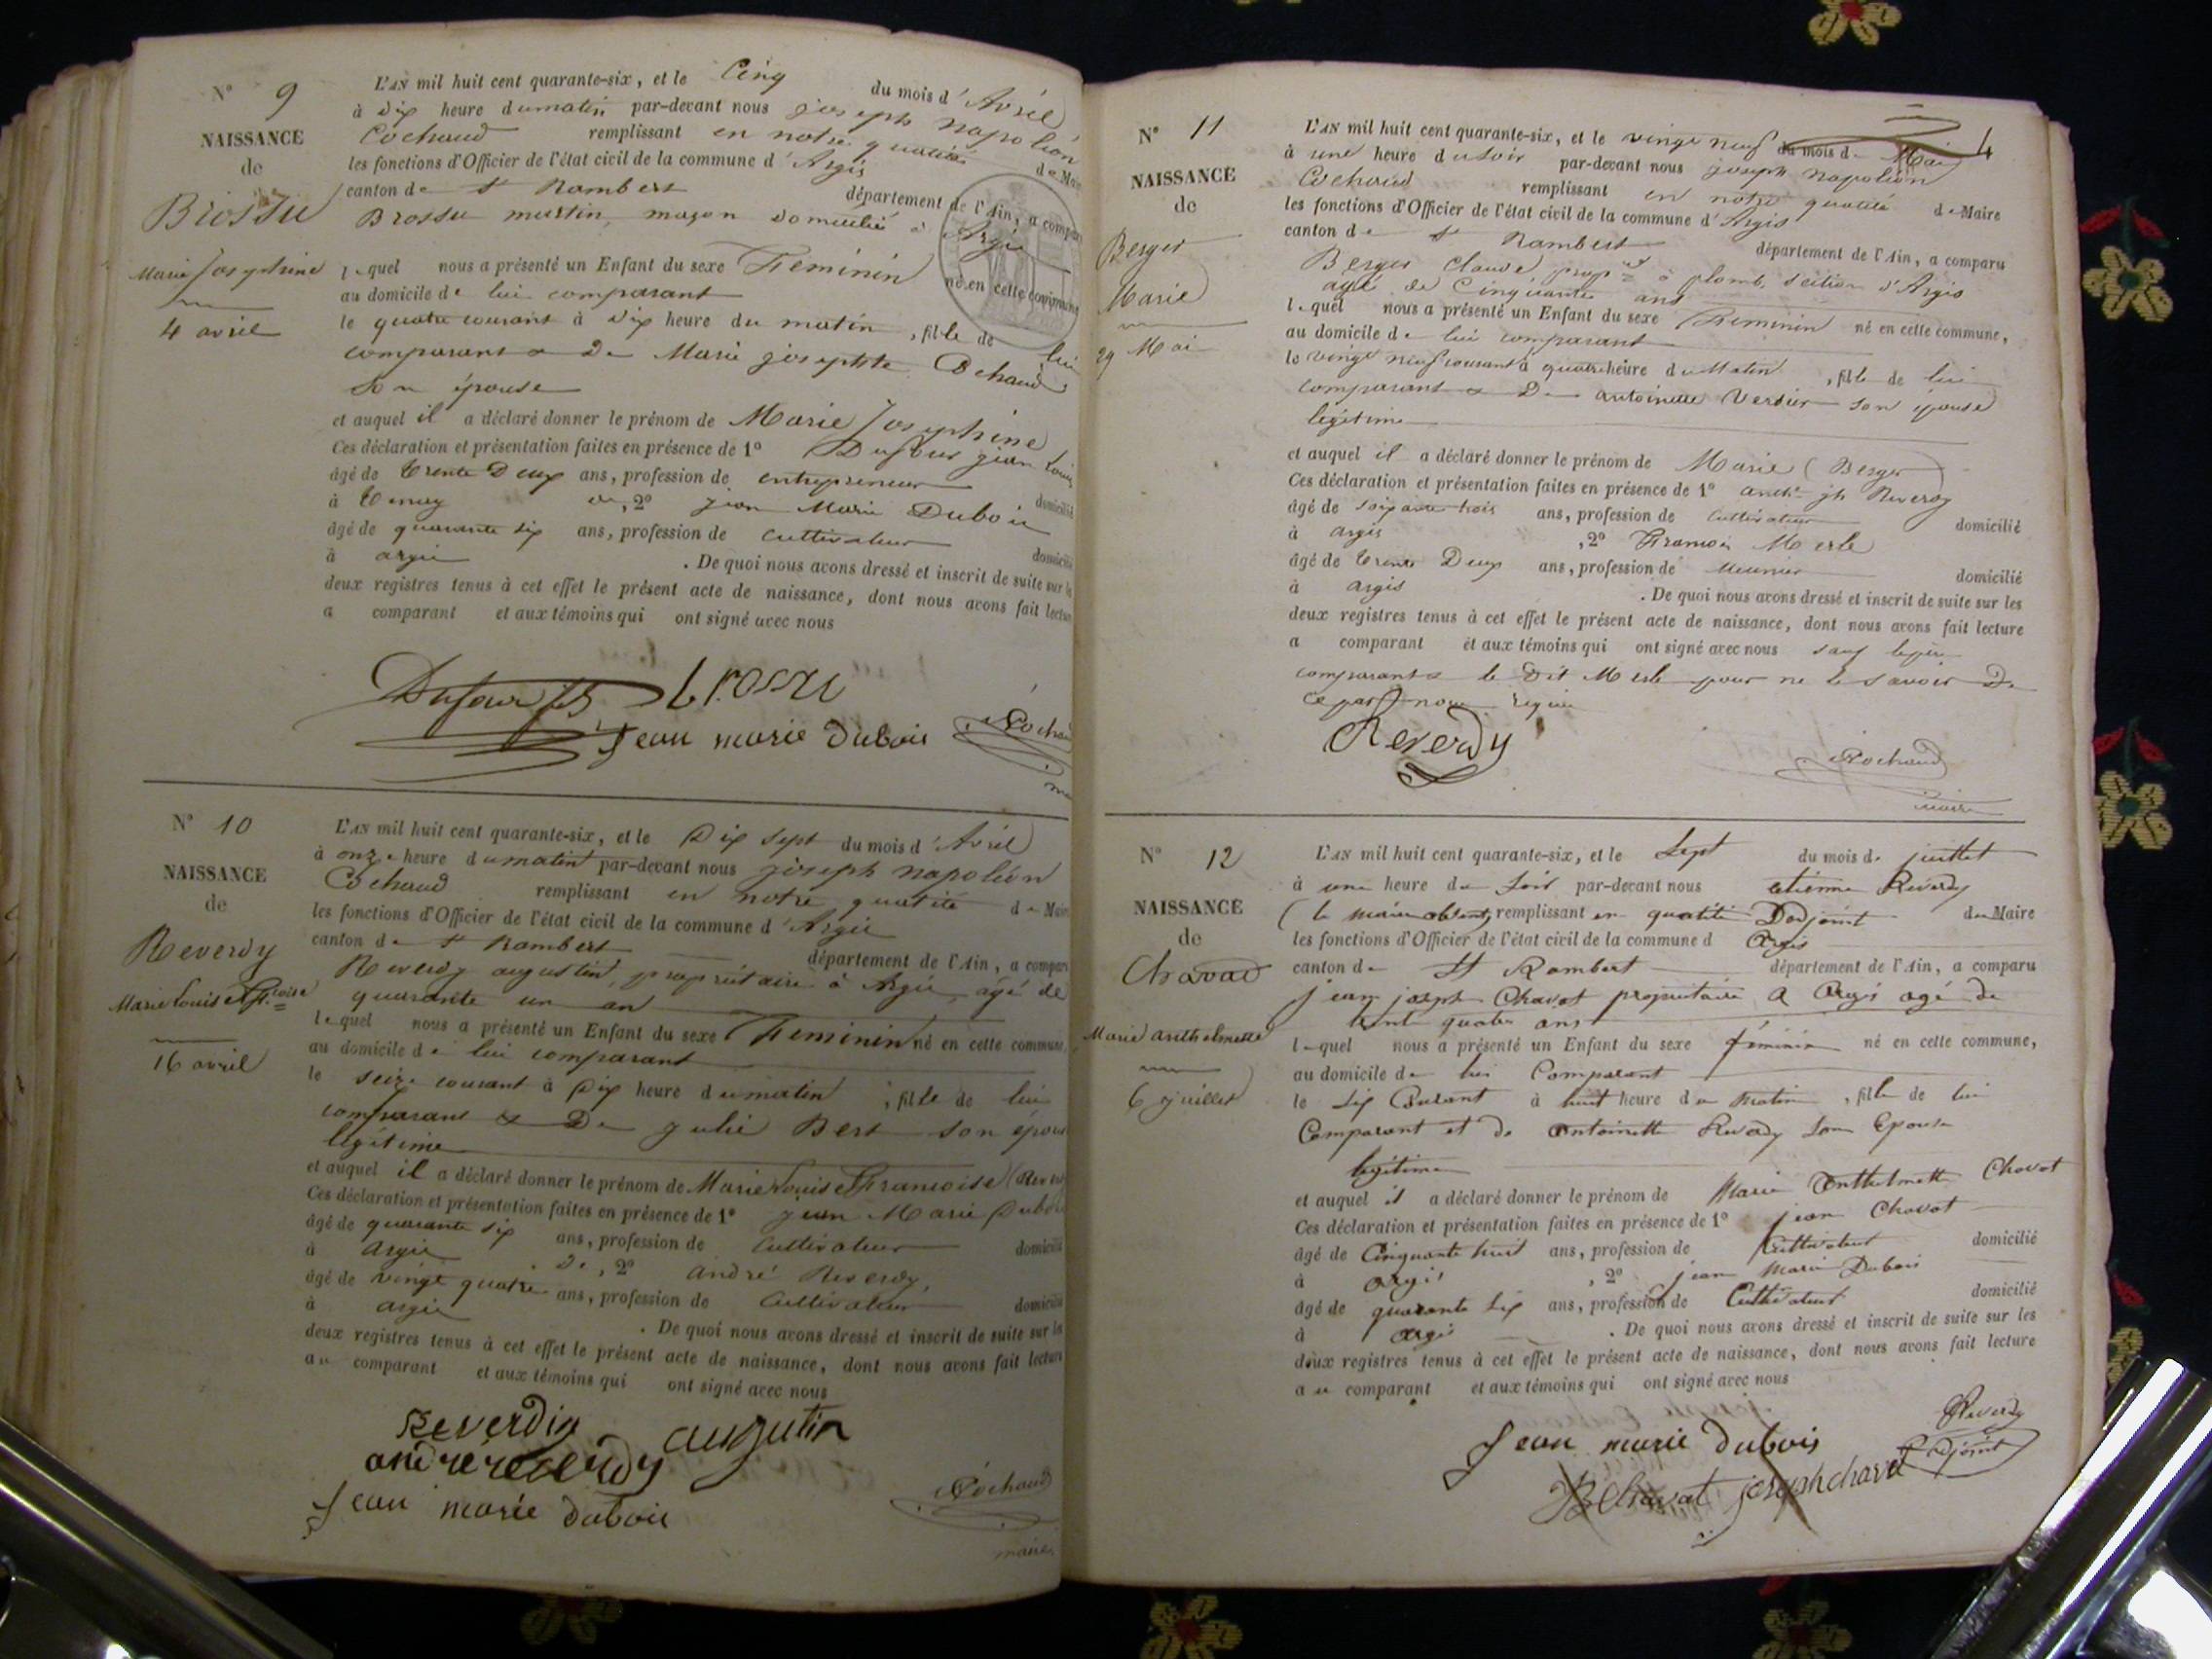 N° 9
NAISSANCE
de
Brossu
Marie Josephine
4 avril
L'AN mil huit cent quarante-six, et le Cinq du mois d'Avril
à dix heure du matin par-devant nous joseph napoléon
Cochaud remplissant en notre qualité de Maire
les fonctions d'Officier de l'état civil de la commune d'Argis
canton de St Rambert département de l'Ain, a comparu
Brossu martin, maçon domicilié à Argis
lequel nous a présenté un Enfant du sexe Féminin né en cette commune
au domicile de lui comparant
le quatre courant à dix heure du matin, fille de lui
comparant & De Marie josephte Cochaud
son épouse
et auquel il a déclaré donner le prénom de Marie Josephine
Ces déclaration et présentation faites en présence de 1° Dufour jean Louis
âgé de trente Deux ans, profession de entrepreneur domicilié
à tenay de, 2° jean Marie Dubois
âgé de quarante six ans, profession de cultivateur domicilié
à argis . De quoi nous avons dressé et inscrit de suite sur les
deux registres tenus à cet effet le présent acte de naissance, dont nous avons fait lecture
a comparant et aux témoins qui ont signé avec nous
Dufour brossu
Jean marie dubois Cochaud
N° 10
NAISSANCE
de
Reverdy
Marie Louise Fçoise
16 avril
L'AN mil huit cent quarante-six, et le Dix sept du mois d'Avril
à onze heure du matin par-devant nous joseph napoléon
Cochaud remplissant en notre qualité de Maire
les fonctions d'Officier de l'état civil de la commune d'Argis
canton de St Rambert département de l'Ain, a comparu
Reverdy augustin, propriétaire à Argis, agé de
quarante un an
lequel nous a présenté un Enfant du sexe Féminin né en cette commune,
au domicile de lui comparant
le seize courant à Dix heure du matin, fille de lui
comparant & De julie Bert son épouse
légitime
et auquel il a déclaré donner le prénom de Marie Louise Francoise (Reverdy
Ces déclaration et présentation faites en présence de 1° jean Marie Dubois
âgé de quarante six ans, profession de Cultivateur domicilié
à argis De, 2° andré Reverdy,
âgé de vingt quatre ans, profession de Cultivateur domicilié
à argis . De quoi nous avons dressé et inscrit de suite sur les
deux registres tenus à cet effet le présent acte de naissance, dont nous avons fait lecture
au comparant et aux témoins qui ont signé avec nous
Reverdiy augustin
andré reverdy
Jean marie dubois Cochaud
maire
4
N° 11
NAISSANCE
de
Berger
Marie
29 Mai
L'AN mil huit cent quarante-six, et le vingt neuf du mois de Mai
à une heure du soir par-devant nous joseph napoléon
Cochaud remplissant en notre qualité de Maire
les fonctions d'Officier de l'état civil de la commune d'Argis
canton de St Rambert département de l'Ain, a comparu
Berger Claude, propre à plomb, section d'Argis
agé de Cinquante ans
lequel nous a présenté un Enfant du sexe Féminin né en cette commune,
au domicile de lui comparant
le vingt neuf courant à quatre heure du Matin, fille de lui
comparant & De antoinette Verdier son épouse
légitime
et auquel il a déclaré donner le prénom de Marie (Berger
Ces déclaration et présentation faites en présence de 1° jh Reverdy
âgé de soixante trois ans, profession de cultivateur domicilié
à argis , 2° Francois Merle
âgé de trente Deux ans, profession de Meunier domicilié
à argis . De quoi nous avons dressé et inscrit de suite sur les
deux registres tenus à cet effet le présent acte de naissance, dont nous avons fait lecture
a comparant et aux témoins qui ont signé avec nous sauf le père
comparant & le Dit Merle pour ne le savoir De
ce par nous requis
Reverdy
Cochaud
maire
N° 12
NAISSANCE
de
Chavat
Marie Anthelmette
6 juillet
L'AN mil huit cent quarante-six, et le Sept du mois de juillet
à une heure du soir par-devant nous etienne Reverdy
(le maire absent) remplissant en qualité Dadjoint du Maire
les fonctions d'Officier de l'état civil de la commune d Argis
canton de St Rambert département de l'Ain, a comparu
jean joseph Chavat propriétaire a Argis agé de
trent quatre ans
lequel nous a présenté un Enfant du sexe féminin né en cette commune,
au domicile de lui Comparant
le Six Courant à huit heure du matin, fille de lui
Comparant et de antoinette Reverdy Son Epouse
legitime
et auquel il a déclaré donner le prénom de Marie Anthelmette Chavat
Ces déclaration et présentation faites en présence de 1° jean Chavat
âgé de Cinquante huit ans, profession de Cultivateur domicilié
à argis , 2° jean Marie Dubois
âgé de quarante Six ans, profession de Cultivateur domicilié
à argis . De quoi nous avons dressé et inscrit de suite sur les
deux registres tenus à cet effet le présent acte de naissance, dont nous avons fait lecture
au comparant et aux témoins qui ont signé avec nous
Reverdy
Jean marie dubois adjoint
Chavat joseph chavat